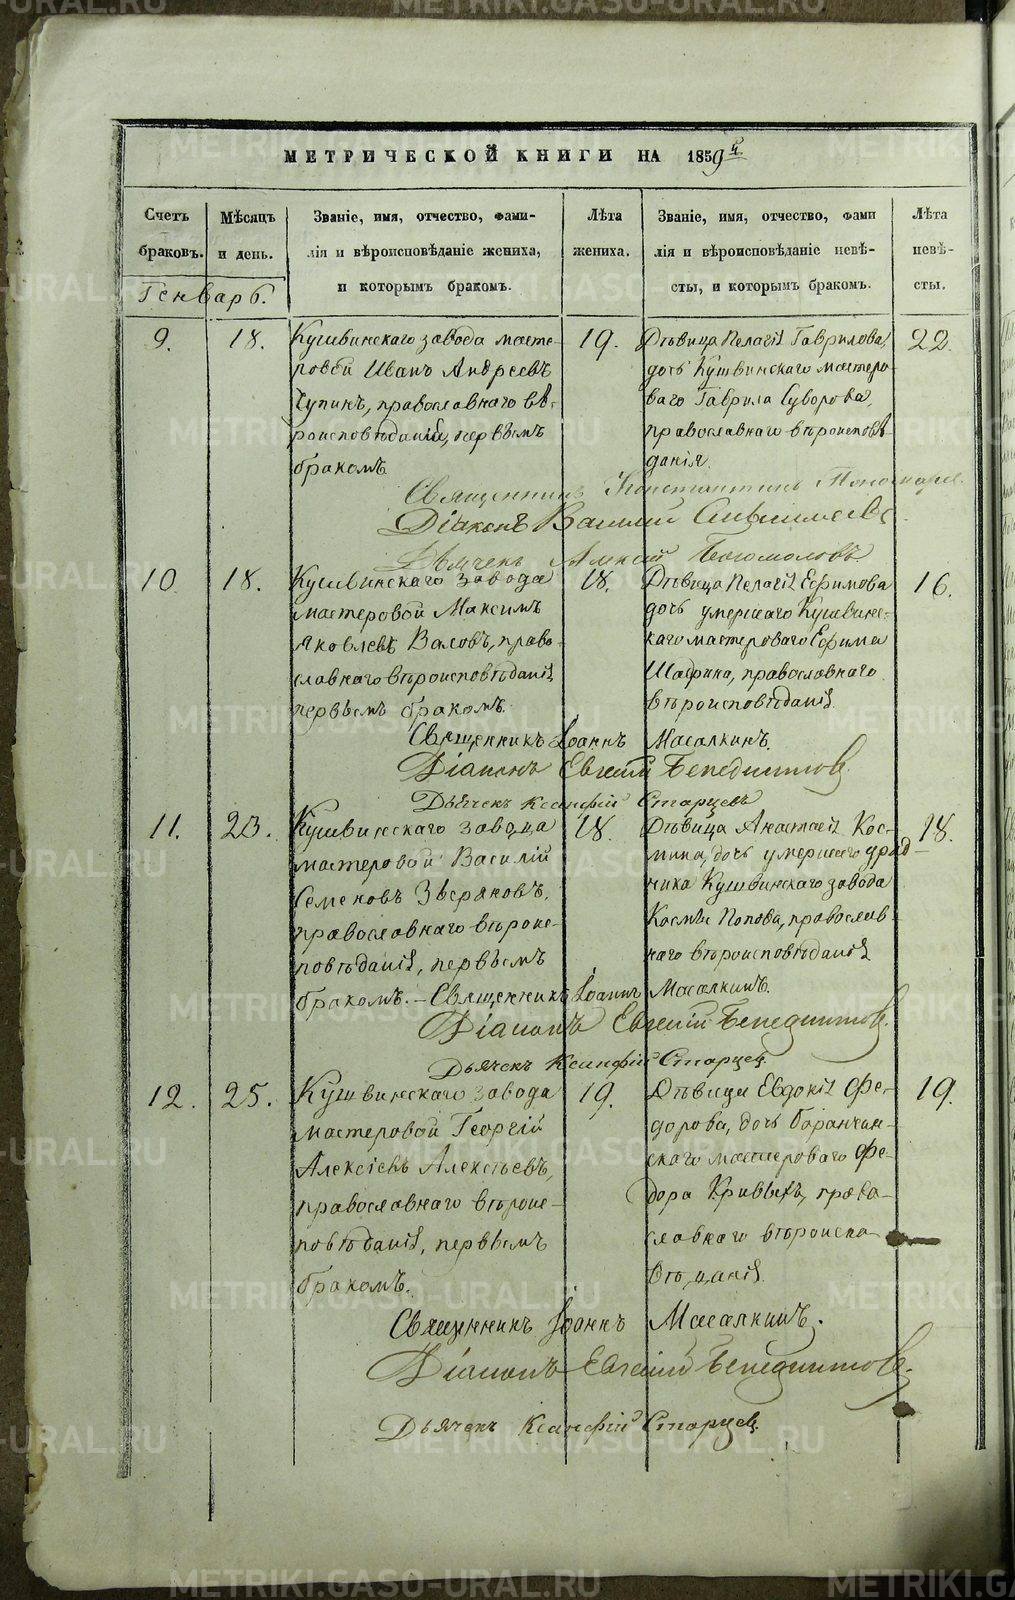 МЕТРИЧЕСКОЙ КНИГИ НА 1859й
Счетъ браковъ.
Мѣсяцъ и день.
Званіе, имя, отчество, фами-
лія и вѣроисповѣданіе жениха,
и которымъ бракомъ.
Лѣта жениха.
Званіе, имя, отчество, фами
лія и вѣроисповѣданіе невѣ-
сты, и которымъ бракомъ.
Лѣта невѣ-
сты.
Генварь.
9.
18.
Кушвинскаго завода масте-
ровой Иванъ Андреевъ
Чупинъ, православнаго вѣ-
роисповѣданія, первымъ
бракомъ
19.
Дѣвица Пелагія Гаврилова,
дочь Кушвинскаго мастеро-
ваго Гаврила Суворова,
православнаго вѣроисповѣ-
данія.
22.
Священникъ Константинъ Пономарев
Діаконъ Василій
Дьячекъ Алексій Богомоловъ
10.
18.
Кушвинскаго завода
мастеровой Максимъ
Яковлевъ Васовъ, право-
славнаго вѣроисповѣданія,
первымъ бракомъ.
18.
Дѣвица Пелагія Ефимова
дочь умершаго Кушвинс-
каго мастероваго Ефима
Шадрина, православнаго
вѣроисповѣданія.
16.
Священникъ Іоаннъ Масалкинъ.
Діаконъ Евгеній Бенедиктов.
Дьячекъ Ксанфій Старцевъ
11.
23.
Кушвинскаго завода
мастеровой Василій
Семеновъ Звѣряковъ,
православнаго вѣроис-
повѣданія, первымъ
бракомъ.
18.
Дѣвица Анастасія Кос-
мина, дочь умершаго уряд-
ника Кушвинскаго завода
Космы Попова, православ-
наго вѣроисповѣданія
18.
Священникъ Іоаннъ Масалкинъ.
Діаконъ Евгеній Бенедиктов.
Дьячекъ Ксанфій Старцев.
12.
25.
Кушвинскаго завода
мастеровой Георгій
Алексіевъ Алексѣевъ,
православнаго вѣроис-
повѣданія, первымъ
бракомъ.
19.
Дѣвица Евдокія Фе-
дорова, дочь Баранчин-
скаго мастероваго Фе-
дора Кривыхъ, право-
славнаго вѣроиспо-
вѣданія.
19.
Священникъ Іоаннъ Масалкинъ.
Діаконъ Евгеній Бенедиктов.
Дьячекъ Ксанфій Старцев.
METRIKI.GASO-URAL.RU